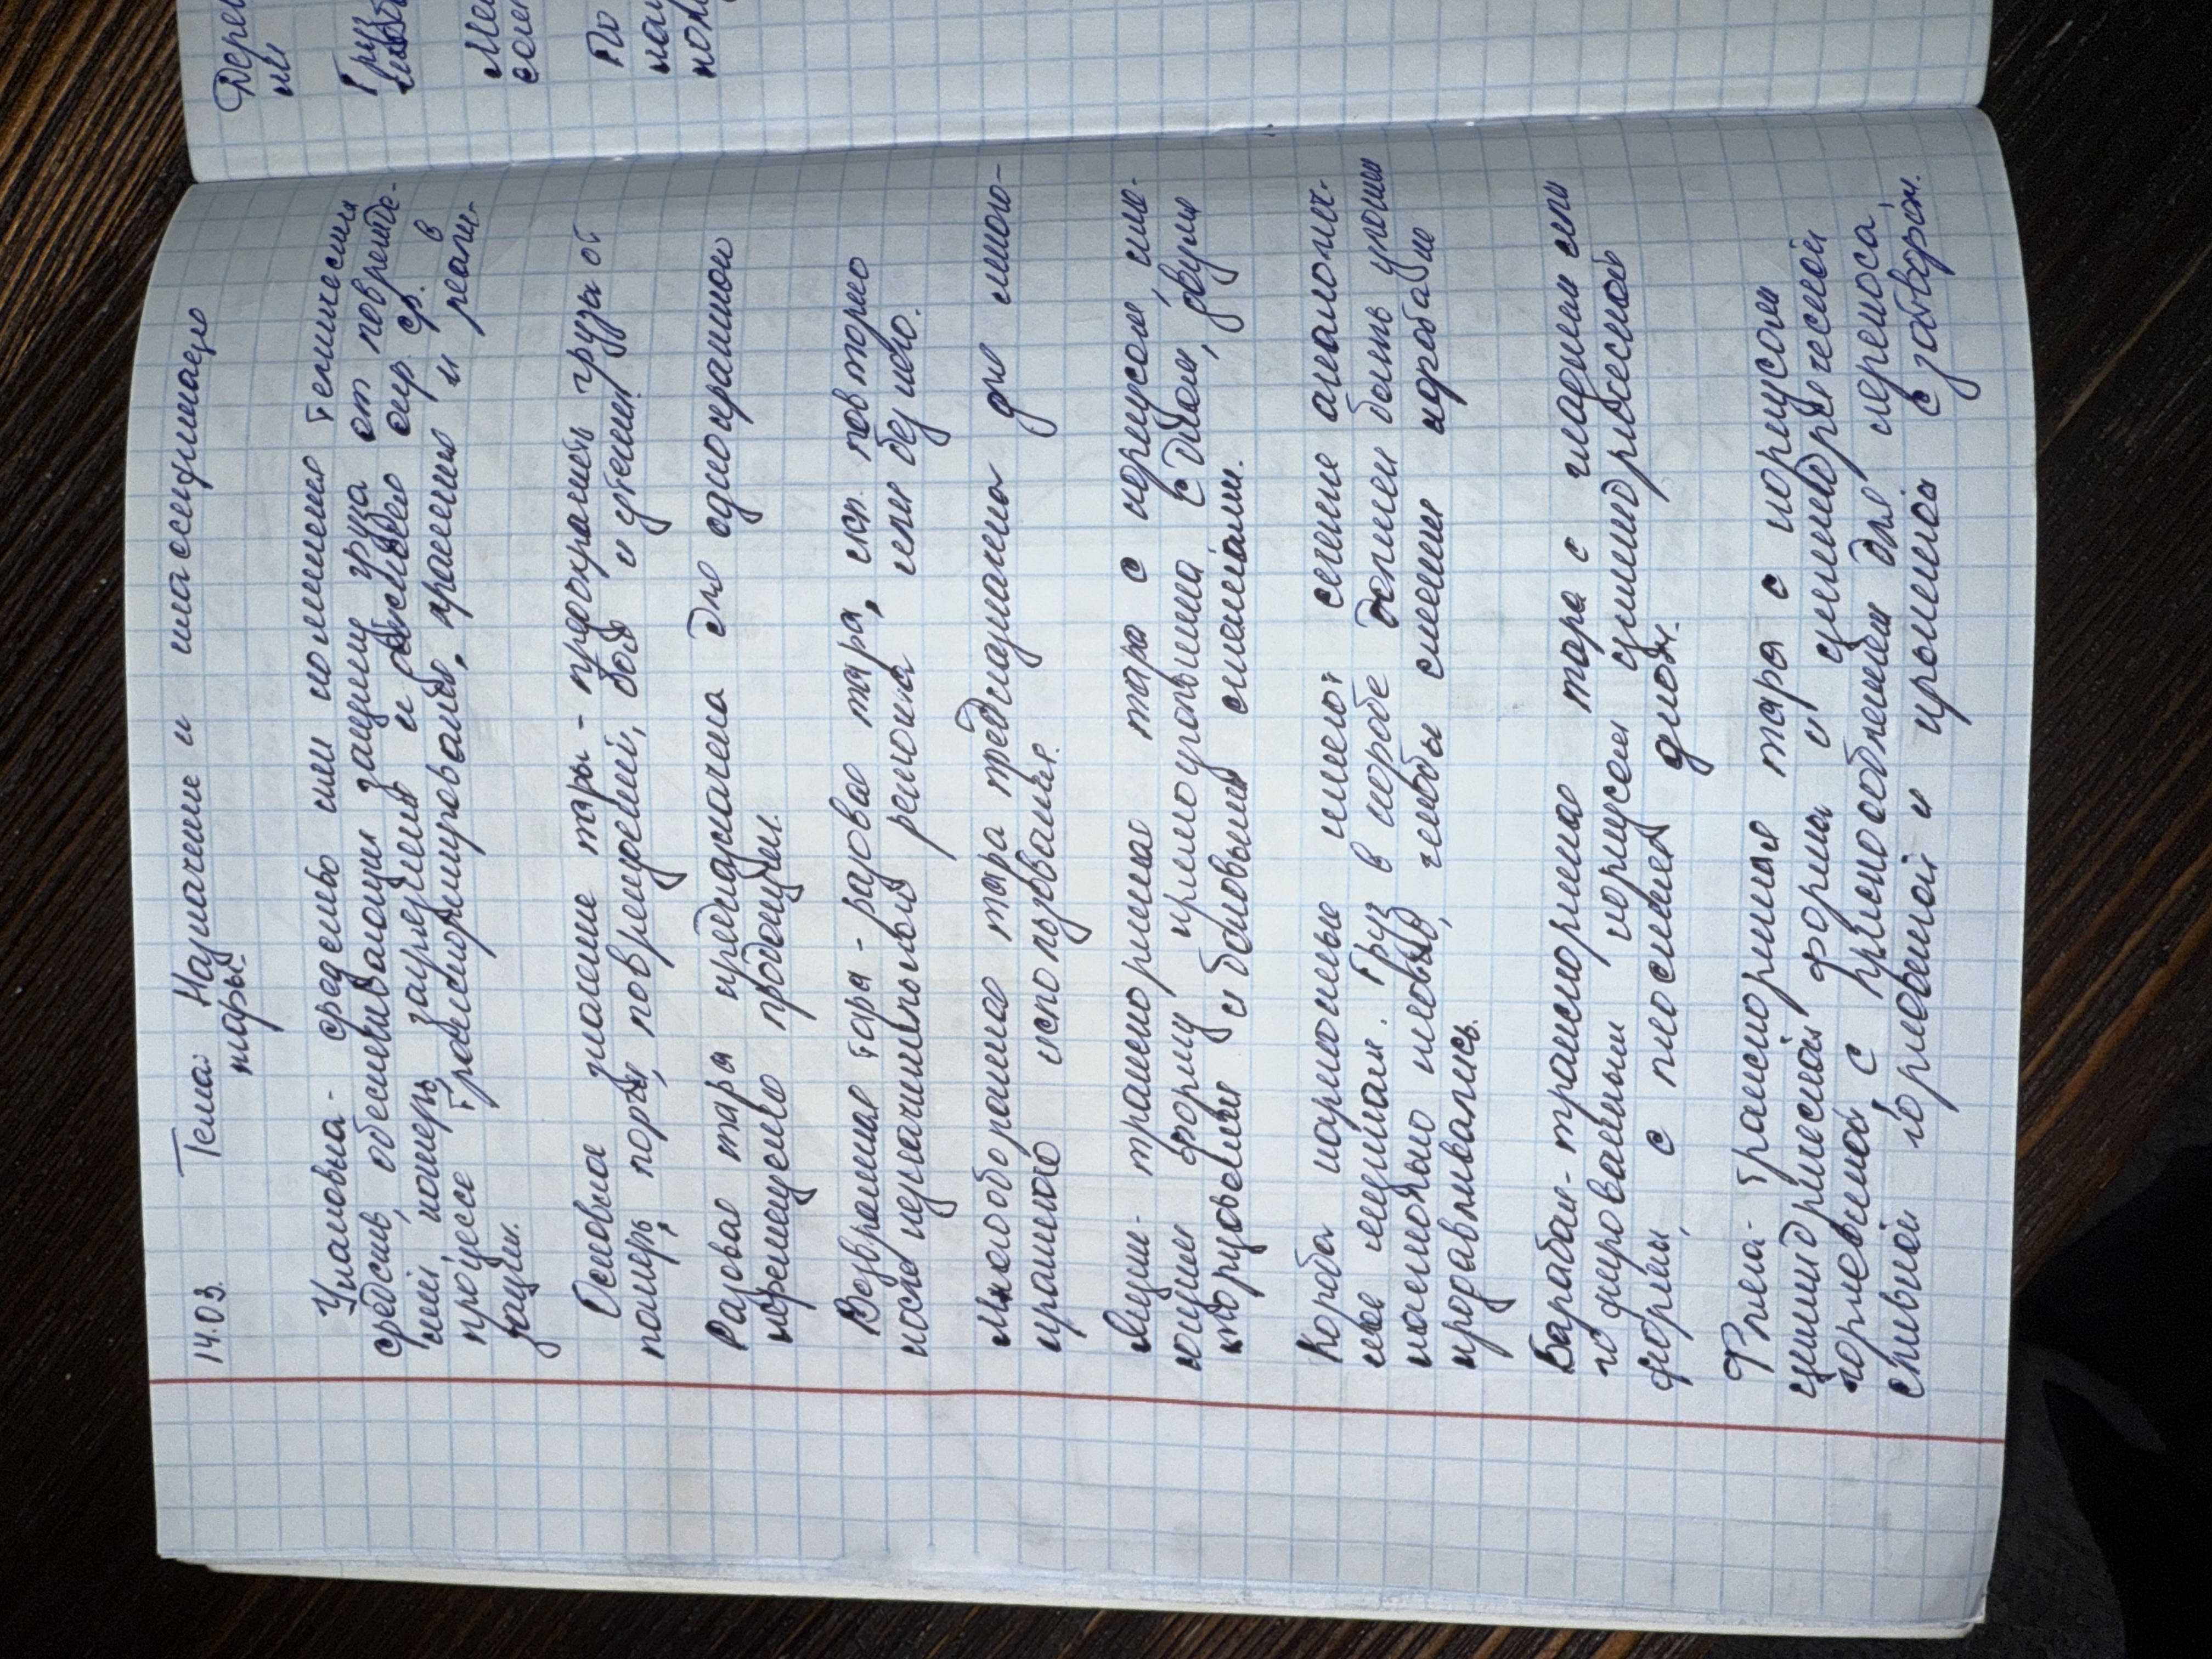 14.03. Тема: Назначение и классификация
тары.
Упаковка - средство или комплекс технических
средств, обеспечивающих защиту груза от поврежде-
ний, потерь, загрязнения и окр. ср. в
процессе транспортирования, хранения и реали-
зации.
Основная тары - предохранять грузы от
потерь, порчи, повреждений, боя и утечки.
Разовая тара предназначена для однократной
перевозки продукции.
Возвратная тара - разовая тара, исп. повторно
после незначительного ремонта или без него.
Многооборотная тара предназначена для много-
кратного использования.
Ящик - транспортная тара с корпусом, име-
ющим форму прямоугольника с дном, двумя
торцовыми и боковыми стенками.
Короба картонные имеют сечение аналогич-
ное ящикам. Груз в коробе должен быть уложен
насколько плотно, чтобы стенки короба не
продавливались.
Барабан - транспортная тара с гладким или
гофрированным корпусом цилиндрической
формы, с плоским дном.
Фляга - транспортная тара с корпусом
цилиндрической формы и цилиндрической
горловиной с приспособлением для переноса,
сливной горловиной и крышкой с затвором.
Дере
Гру
Ме
По